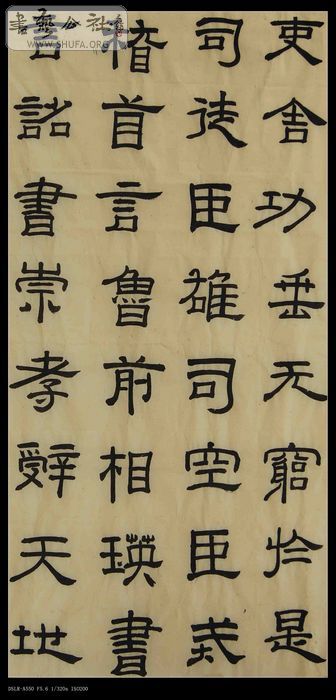 吏舍功垂无窮於是
司徒臣雄司空臣戒
稽首言魯前相瑛書
言詔書崇孝辭天地
書藝公社
WWW.SHUFA.ORG
DSLR-A550 F5.6 1/320s ISO200